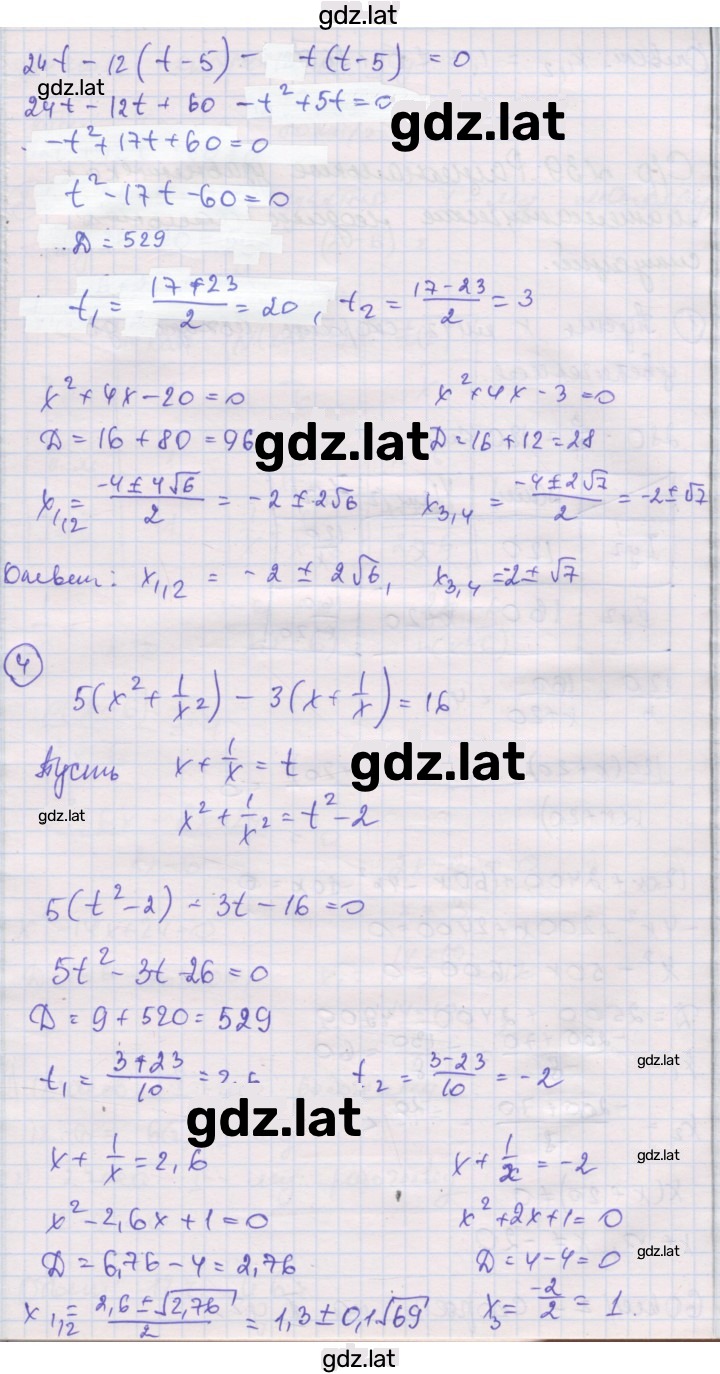 gdz.lat
24t - 12(t-5) - t(t-5) = 0
24t - 12t + 60 - t² + 5t = 0
gdz.lat
-t² + 17t + 60 = 0
t² - 17t - 60 = 0
D = 529
t₁ = (17+23)/2 = 20, t₂ = (17-23)/2 = 3
x² + 4x - 20 = 0 x² + 4x - 3 = 0
D = 16 + 80 = 96 gdz.lat D = 16 + 12 = 28
x₁,₂ = (-4 ± 4√6)/2 = -2 ± 2√6 x₃,₄ = (-4 ± 2√7)/2 = -2 ± √7
Ответ: x₁,₂ = -2 ± 2√6, x₃,₄ = -2 ± √7
4
5(x² + 1/x²) - 3(x + 1/x) = 16
Пусть x + 1/x = t gdz.lat
gdz.lat x² + 1/x² = t² - 2
5(t² - 2) - 3t - 16 = 0
5t² - 3t - 26 = 0
D = 9 + 520 = 529
t₁ = (3+23)/10 = 2,6 t₂ = (3-23)/10 = -2 gdz.lat
gdz.lat
x + 1/x = 2,6 x + 1/x = -2 gdz.lat
x² - 2,6x + 1 = 0 x² + 2x + 1 = 0
D = 6,76 - 4 = 2,76 D = 4 - 4 = 0 gdz.lat
x₁,₂ = (2,6 ± √2,76)/2 = 1,3 ± 0,1√69 x₃ = -2/2 = 1.
gdz.lat